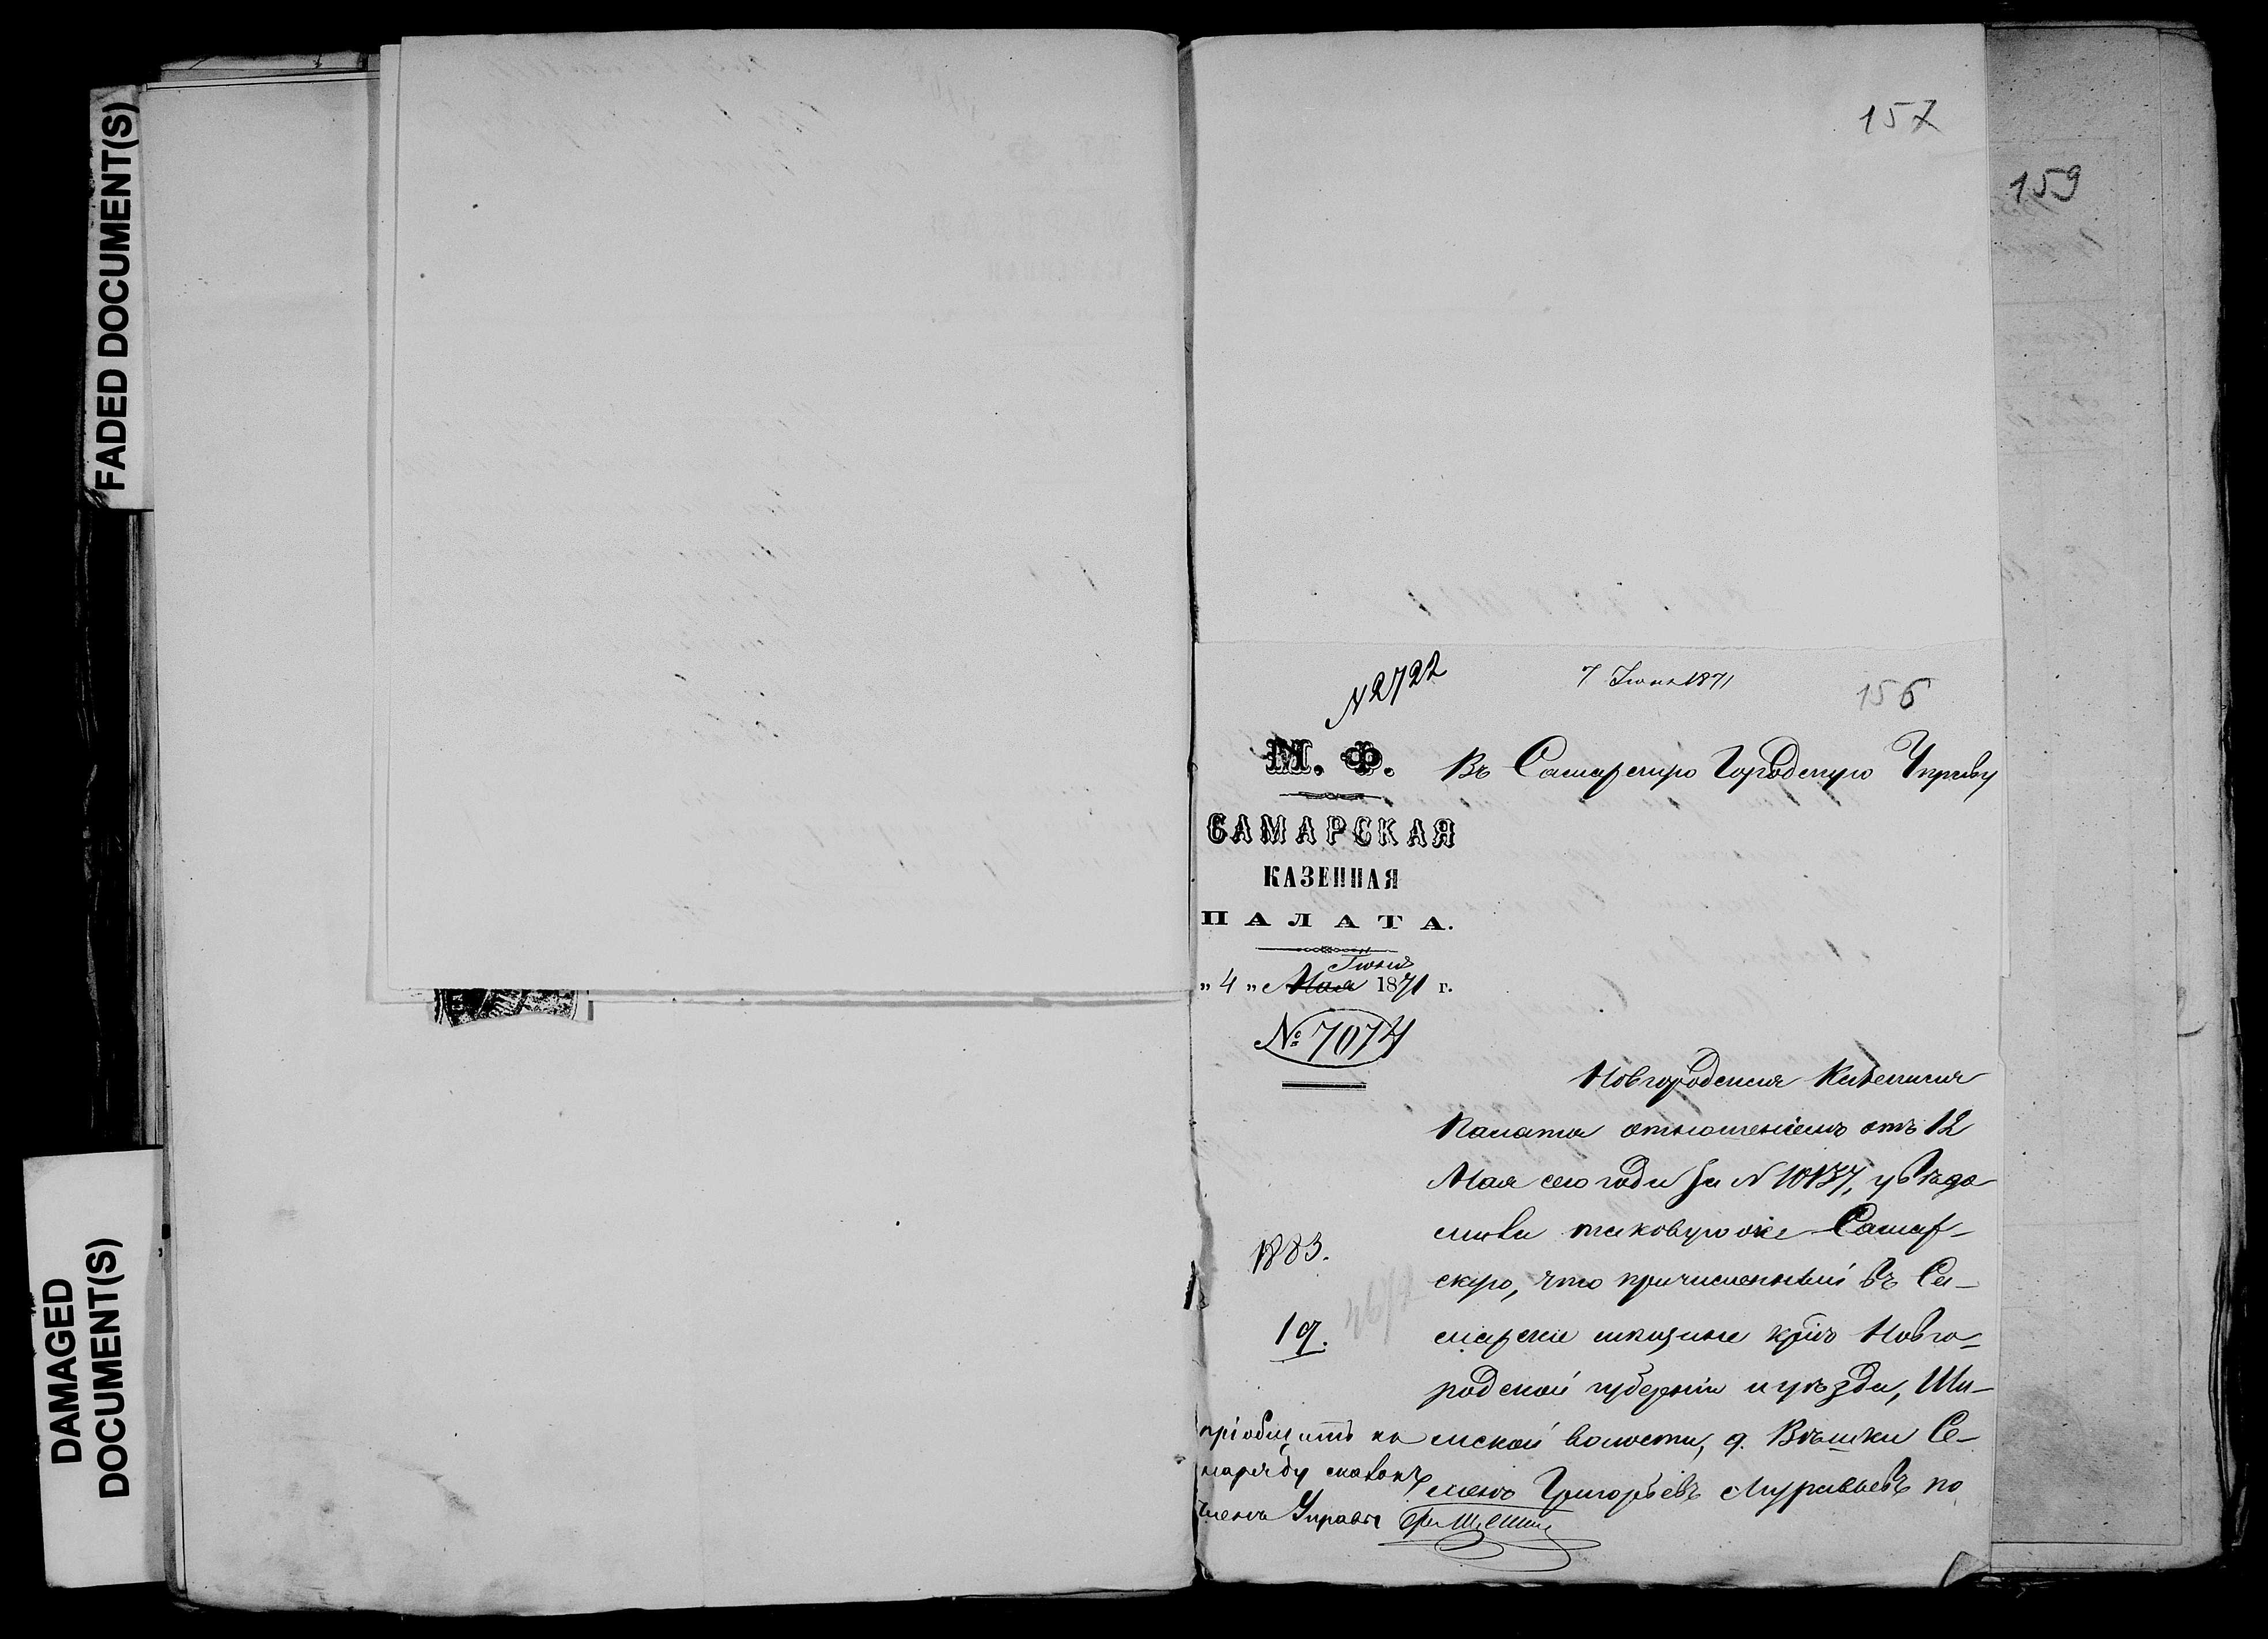 FADED DOCUMENT(S)
DAMAGED
DOCUMENT(S)
157
159
N 2722
7 Июня 1871
156
М. Ф.
САМАРСКАЯ
КАЗЕННАЯ
ПАЛАТА.
Июня
„ 4 „ Мая 1871 г.
№ 7074
Въ Самарскую Городскую Управу
Новгородская Казенная
Палата отношеніемъ отъ 12
Мая сего года за N 10137, увѣдо
мила таковую же Самар-
скую, что причисленный въ Са-
марские мѣщане кр͠нъ Новго-
родской губерніи и уѣзда, Ши-
мской волости, д. Вяшки Се-
менъ Григорьевъ Муравьевъ по
1883.
19.
пріобщить къ
наряду
Членъ Управы